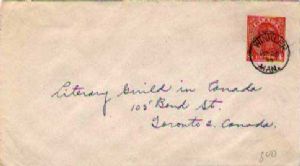 CANADA
MAN.
Literary Guild in Canada
103 Bond St.
Toronto 2. Canada.